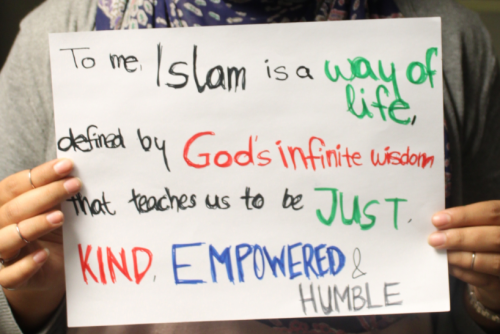 To me, Islam is a way of
life,
defined by God's infinite wisdom
that teaches us to be JUST,
KIND, EMPOWERED &
HUMBLE